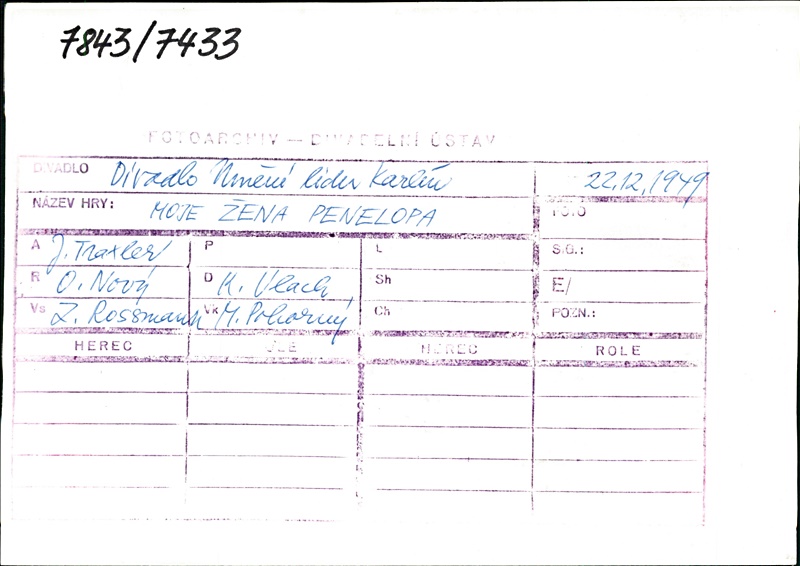 7843/7433
FOTOARCHIV — DIVADELNÍ ÚSTAV
DIVADLO Divadlo Umění lidu Karlín 22.12.1949
NÁZEV HRY: MOJE ŽENA PENELOPA
A J. Traxler P L S.G.:
R O. Nový D K. Vlach Sh E/
Vs Z. Rossmann Vk M. Pokorný Ch POZN.:
HEREC HEREC ROLE